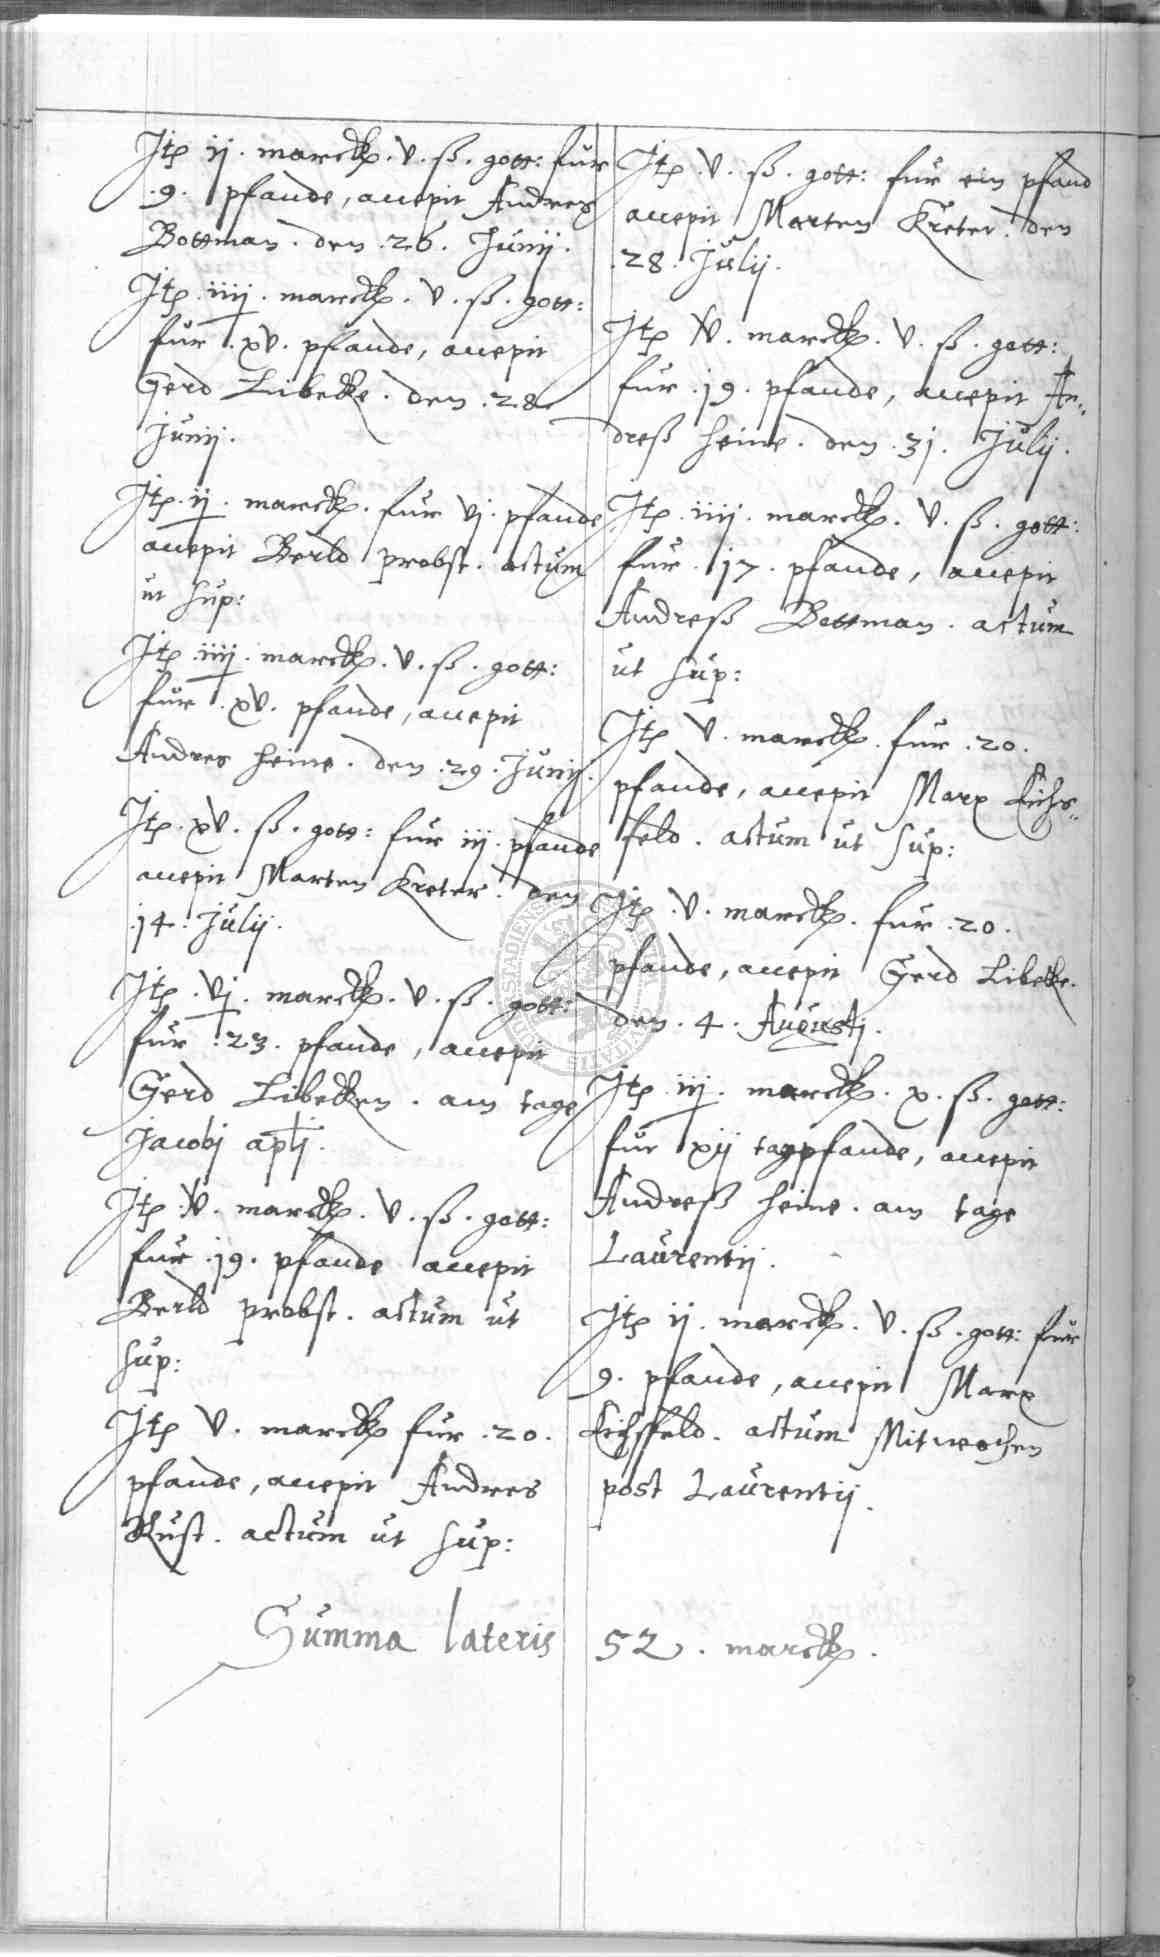 Jtem ij. marck. v. ß. gott: fur
.9. pfande, accepit Andres
Bottman. den .26. Junij.
Jtem .iiij. marck. v. ß. gott:
fur .xv. pfande, accepit
Gerd Libecke. den .28.
Junij.
Jtem .ij. marck. fur vj. pfande
accepit Berld probst. actum
ut sup:
Jtem .iiij. marck. v. ß. gott:
fur .xv. pfande, accepit
Andres Heine. den .29. Junij.
Jtem .xv. ß. gott: fur iij. pfande
accepit Marten Kreter. den
.14. Julij.
Jtem .vj. marck. v. ß. gott:
fur .23. pfande, accepit
Gerd Libecken. am tage
Jacobj apli.
Jtem v. marck. v. ß. gott:
fur .19. pfande accepit
Berld probst. actum ut
sup:
Jtem v. marck fur .20.
pfande, accepit Andres
Rust. actum ut sup:
Jtem .v. ß. gott: fur ein pfand
accepit Marten Kreter. den
.28. Julij.
Jtem v. marck. v. ß. gott:
fur .19. pfande, accepit An=
dreß Heine. den .31. Julij.
Jtem .iiij. marck. v. ß. gott:
fur .17. pfande, accepit
Andreß Bottman. actum
ut sup:
Jtem v. marck. fur .20.
pfande, accepit Marx Eichs=
feld. actum ut sup:
Jtem .v. marck. fur .20.
pfande, accepit Gerd Libecke.
den .4. Augustj.
Jtem .iij. marck. x. ß. gott:
fur xij tagpfande, accepit
Andreß Heine. am tage
Laurentij.
Jtem ij. marck. v. ß. gott: fur
9. pfande, accepit Marx
Eichsfeld. actum Mitwochen
post Laurentij.
Summa lateris 52. marck.